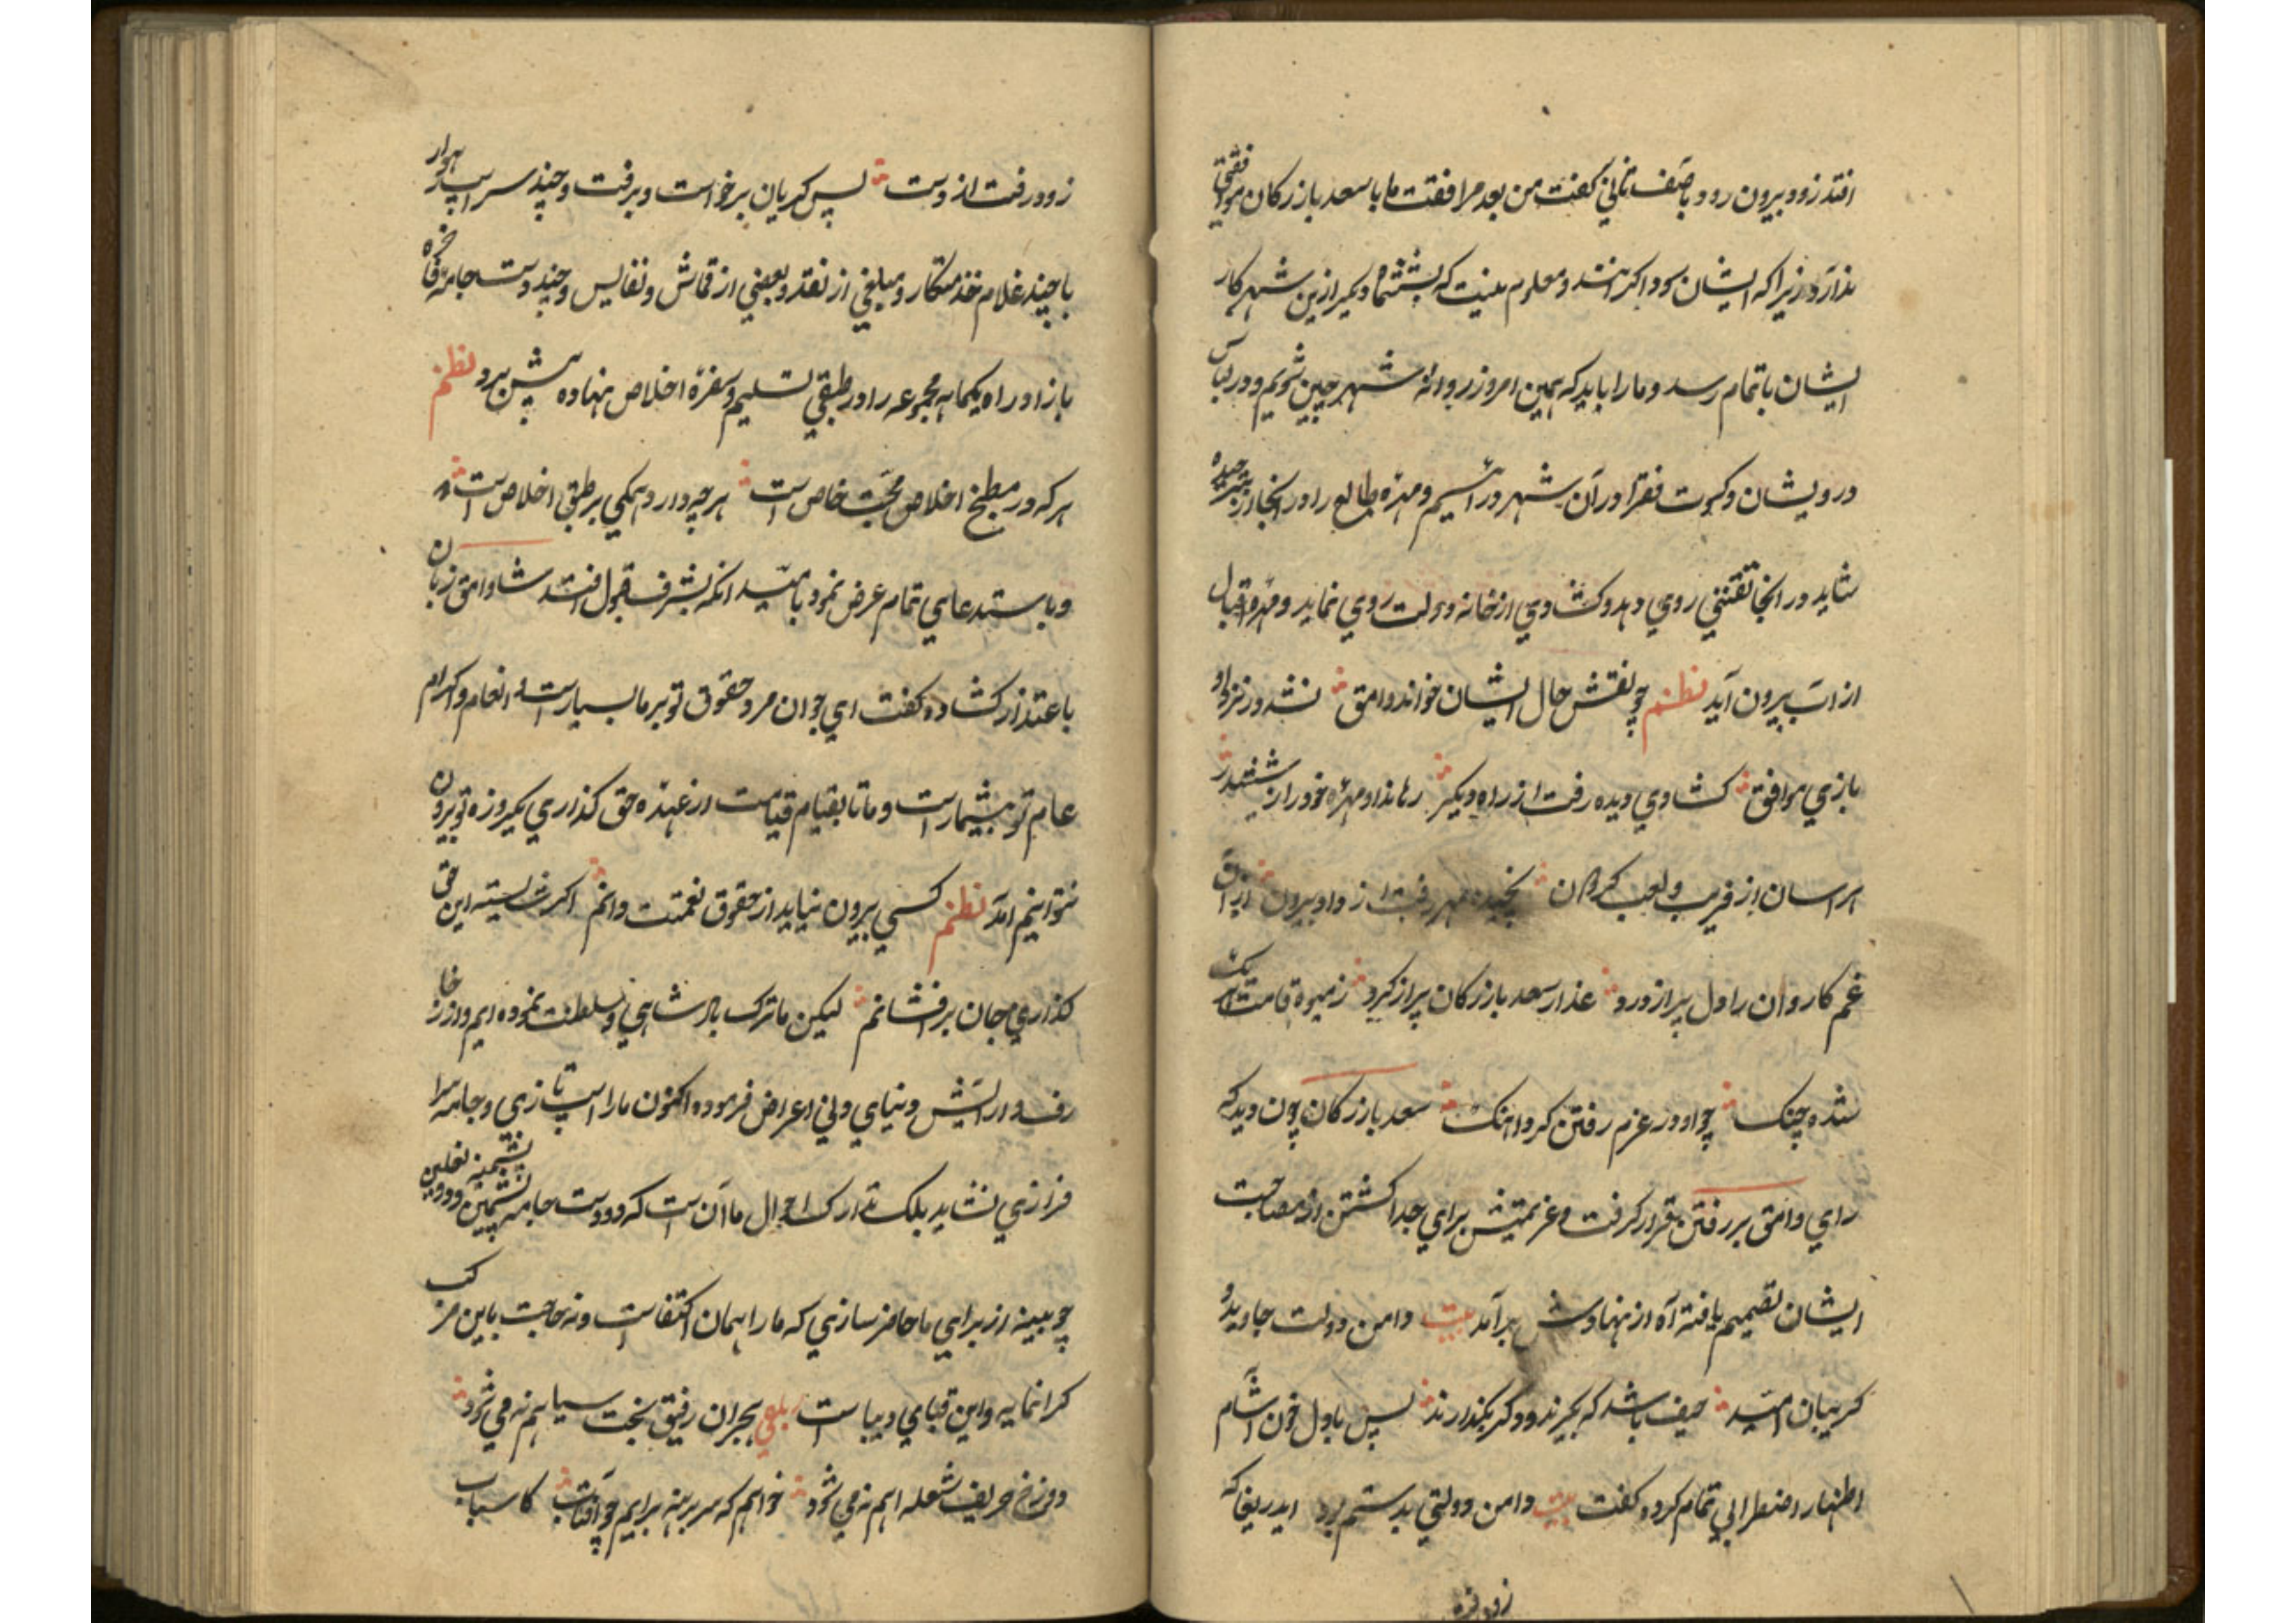 افتد زود بیرون رود باصف ثانی کفت من بعد مرافقت ما با سعد بازرکان موافقتی
ندارد زیرا که ایشان سوداکرانند و معلوم نیست که شش ماه دیکر ازین شهر کار
ایشان باتمام رسد و ما را باید که همین امروز روانه شهر چین شویم و در لباس
درویشان و کسوت فقرا در آن شهر درآئیم و مهره طالع را در انجا
شاید در انجا نقشی روی دهد و کشادی از خانه دولت روی نماید و مهره اقبال
از اب بیرون آید نظم چو نقش حال ایشان خواند وامق نشد در نزد او
بازی موافق کشادی دیده رفت از راه دیکر رهاند او مهره خود را ز ششدر
هراسان از فریب و لعب کردان بیرون
غم کاروان را دل پر از درد عذار سعد بازرکان پر از کرد زمیوه قامت
شده چنک چو او در عزم رفتن کرد اهنک سعد بازرکان چون دید که
رای وامق بر رفتن قرار کرفت و عزیمتش برای جدا کشتن از مصاحبت
ایشان تصمیم یافته آه از نهادش برآمد بیت دامن دولت جاوید و
کریبان امید حیف باشد که بکیرند و دکر بکذارند پس با دل خون آشام
اظهار اضطرابی تمام کرده کفت بیت دامن دولتی بدستم بود ایدریغا که
زود رفت
زود رفت از دست پس کریان برخواست و برفت و چند سر اسپ رهوار
با چند غلام خدمتکار و مبلغی از نقد و بعضی از قماش و نفایس و چند دست جامه فاخره
باز اد راه یکماهه مجموعه را در طبق تسلیم و سفره اخلاص نهاده پیش برد نظم
هر که در مطبخ اخلاص محبت خاص است هر چه دارد همکی بر طبق اخلاص است
و باستدعای تمام عرض نمود بامید انکه بشرف قبول افتد شاه وامق زبان
باعتذار کشاده کفت ای جوان مرد حقوق تو بر ما بسیار است و انعام و اکرام
عام تو بیشمار است و ما تا بقیام قیامت از عهده حق کذاری یکروزه تو بیرون
نتوانیم امد نظم کسی بیرون نیاید از حقوق نعمتت دانم اکر شایسته این حق
کذاری جان برافشانم لیکن ما ترک پادشاهی و سلطنت نموده ایم و از زخا
رف و ارایش دنیای دنی اعراض فرموده اکنون ما را اسپ تازی و جامه سرا
فرازی نشاید بلک تدارک احوال ما آن است که دو دست جامه پشمین و دو نعلین
چوبینه از برای ما حاضر سازی که ما را همان اکتفاست و نه حاجت باین مرکب
کرانمایه و این قبای دیباست رباعی بحران رفیق بخت سیاهم نه می شود
دوزخ حریف شعله اهم نه می شود خواهم که سر برهنه برایم چو آفتاب کاسباب